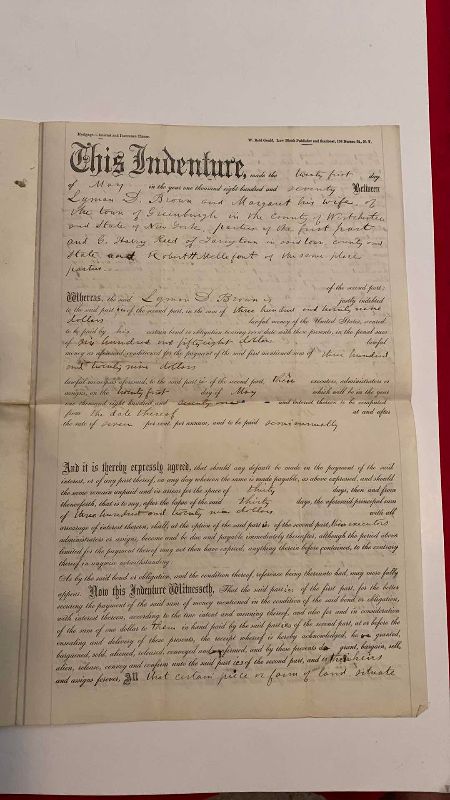 Mortgage—Interest and Insurance Clause.
W. Reid Gould, Law Blank Publisher and Stationer, 136 Nassau St., N. Y.
This Indenture, made the twenty first day
of May in the year one thousand eight hundred and seventy Between
Lyman D. Brown and Margaret his wife of
the town of Greenburgh in the County of Westchester
and State of New York, parties of the first part
and C. Reed of Tarrytown in said County and
State and Robert of the same place
parties
of the second part;
Whereas, the said Lyman D. Brown is justly indebted
to the said parties of the second part, in the sum of three hundred and twenty nine
dollars lawful money of the United States, secured
to be paid by his certain bond or obligation bearing even date with these presents, in the penal sum
of six hundred and fifty eight dollars lawful
money as aforesaid, conditioned for the payment of the said first mentioned sum of three hundred
and twenty nine dollars
lawful money as aforesaid, to the said parties of the second part, their executors, administrators or
assigns, on the twenty first day of May which will be in the year
one thousand eight hundred and seventy one and interest thereon to be computed
from the date thereof at and after
the rate of seven per cent. per annum, and to be paid semi annually
And it is thereby expressly agreed, that should any default be made in the payment of the said
interest, or of any part thereof, on any day whereon the same is made payable, as above expressed, and should
the same remain unpaid and in arrear for the space of thirty days, then and from
thenceforth, that is to say, after the lapse of the said thirty days, the aforesaid principal sum
of three hundred and twenty nine dollars with all
arrearage of interest thereon, shall, at the option of the said parties of the second part, their executors
administrators or assigns, become and be due and payable immediately thereafter, although the period above
limited for the payment thereof may not then have expired, anything therein before contained, to the contrary
thereof in anywise notwithstanding
As by the said bond or obligation, and the condition thereof, reference being thereunto had, may more fully
appear. Now this Indenture Witnesseth, That the said parties of the first part, for the better
securing the payment of the said sum of money mentioned in the condition of the said bond or obligation,
with interest thereon, according to the true intent and meaning thereof, and also for and in consideration
of the sum of one dollar to them in hand paid by the said parties of the second part, at or before the
ensealing and delivery of these presents, the receipt whereof is hereby acknowledged, have granted,
bargained, sold, aliened, released, conveyed and confirmed, and by these presents do grant, bargain, sell,
alien, release, convey and confirm unto the said parties of the second part, and to their heirs
and assigns forever, All that certain piece or farm of land situate